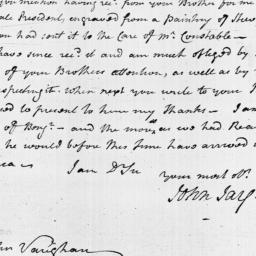 you mention having rec.d from your Brother for me
President, engraved from a Painting of Stew
on had sent it to the Care of Mr. Constable—
have since rec.d it and am much obliged by
of your Brothers attention, as well as by
respecting it. when next you write to your
to present to him my thanks— I am
off — and the more, as we had Rea
he would before this time have arrived
I am Dr. Sir
your most ob.
John Jay
Vaughan